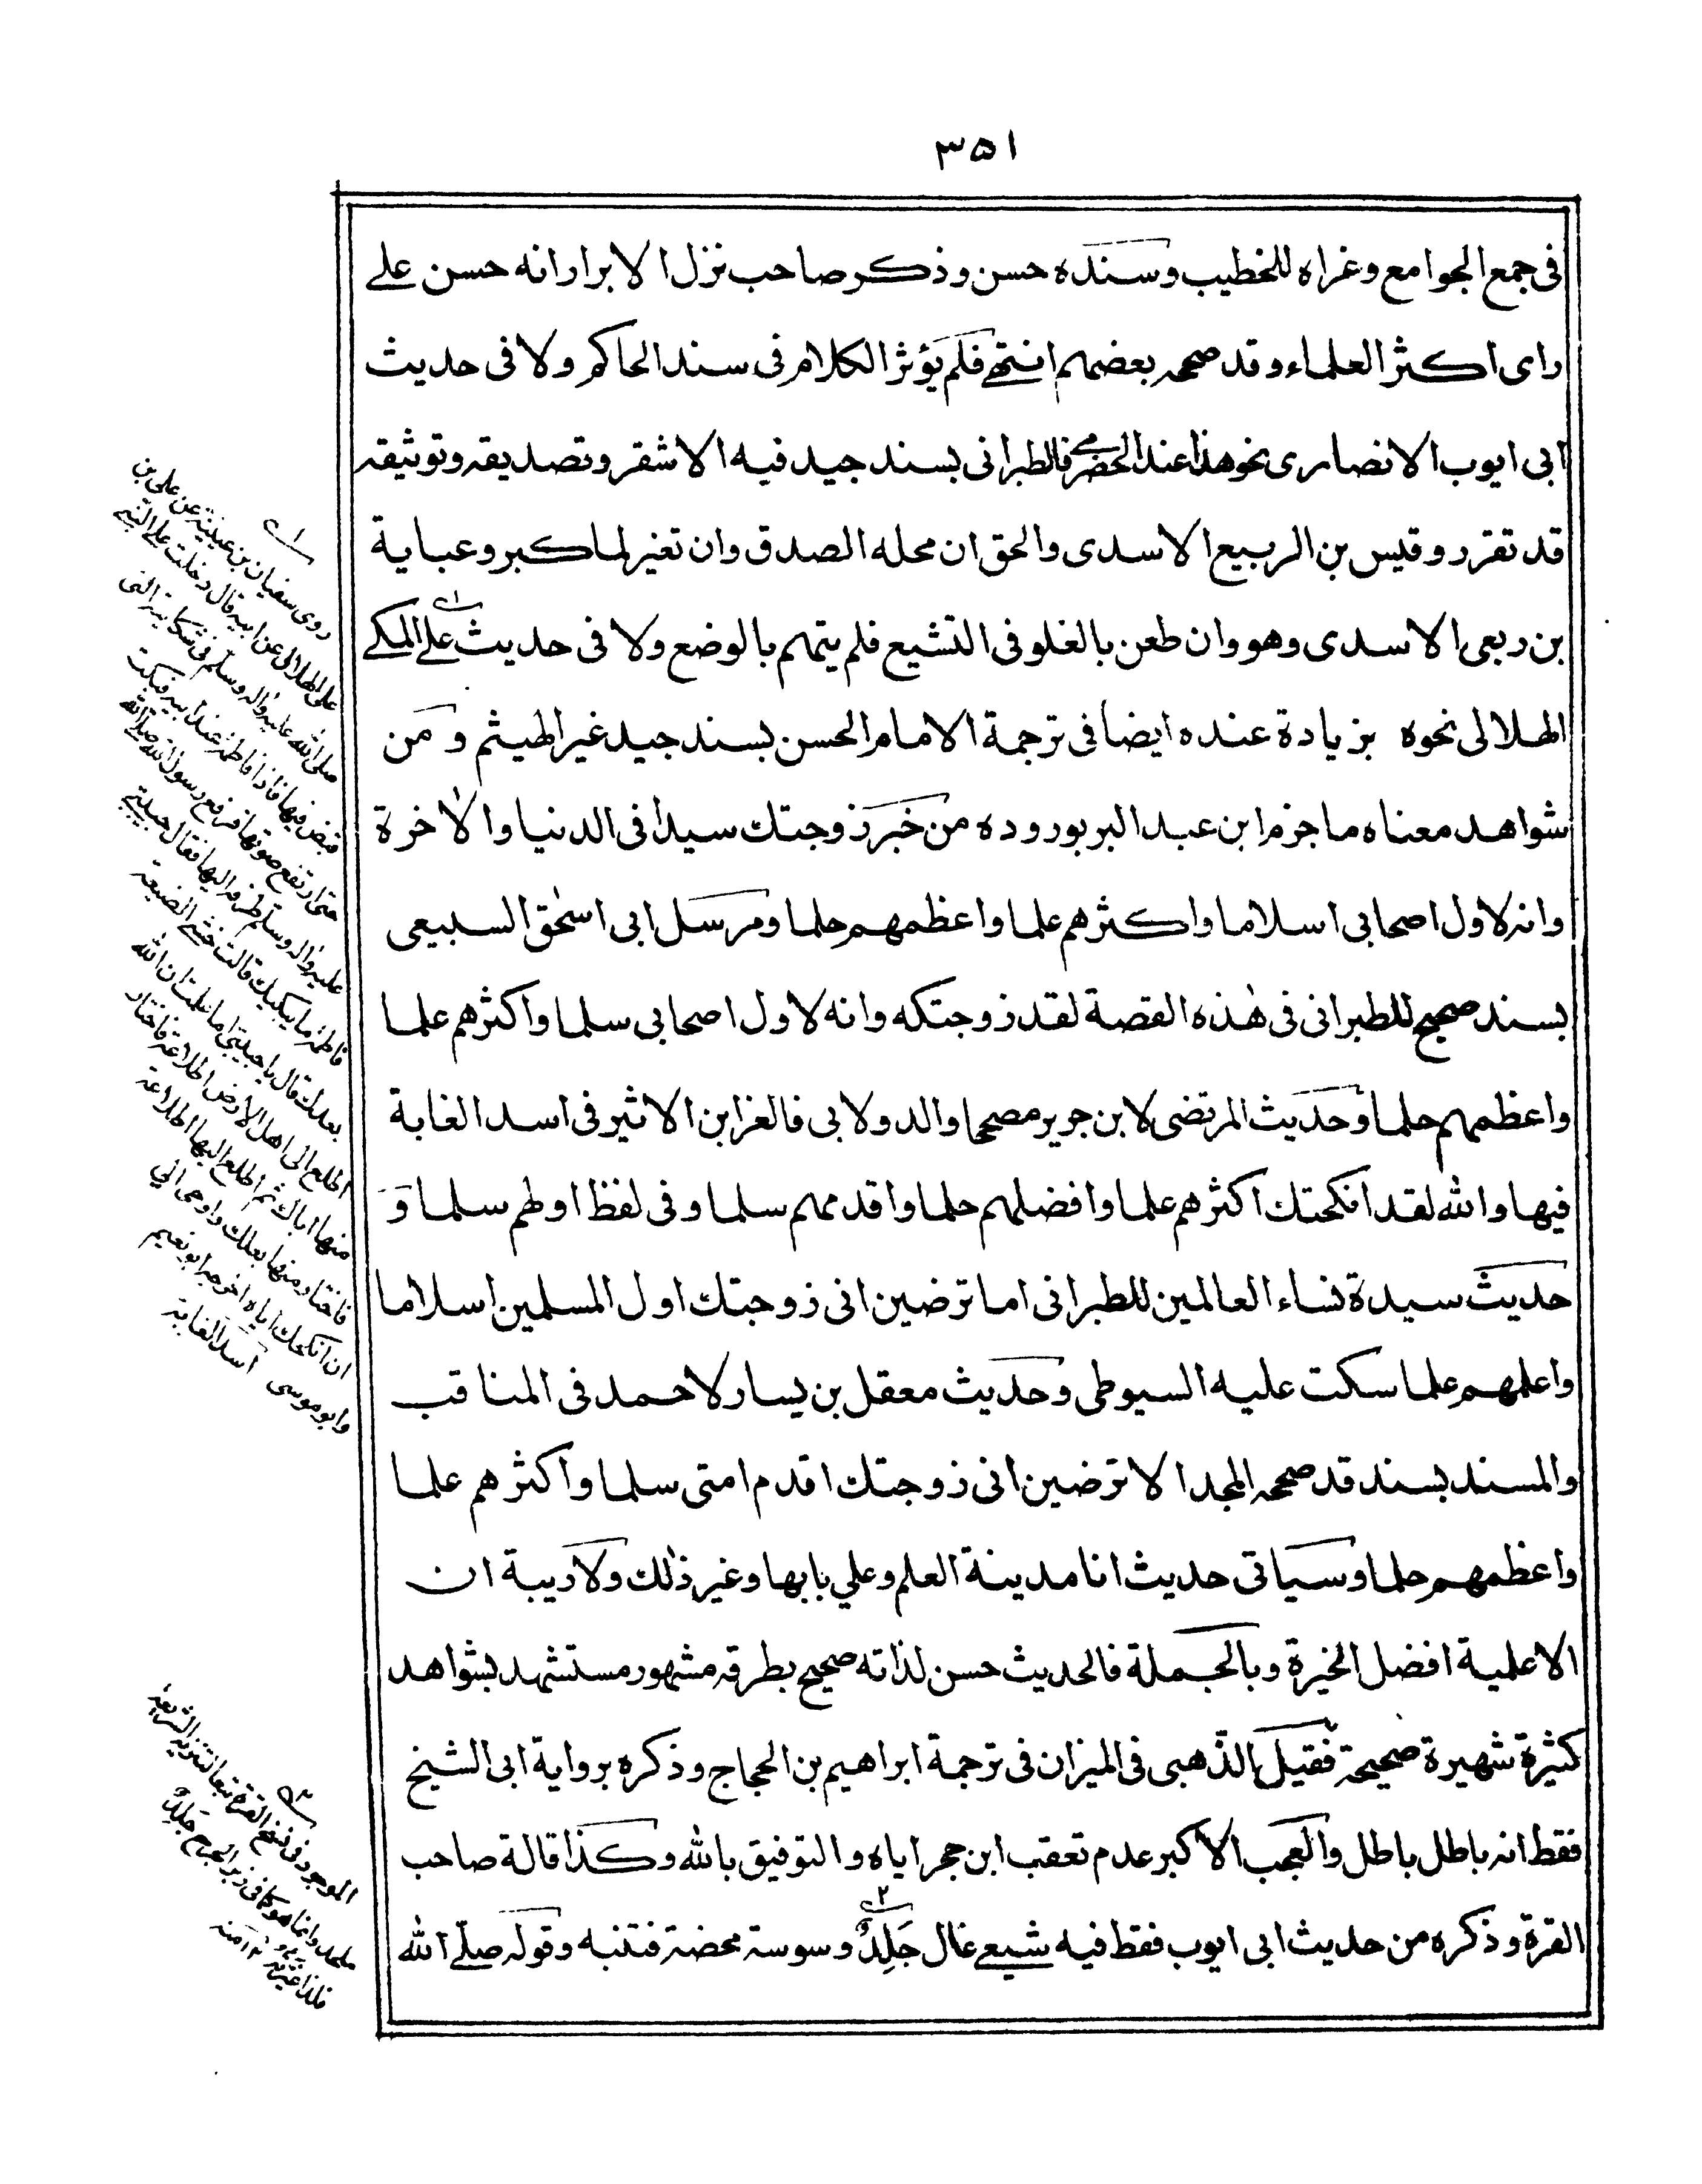 ٣٥١
فی جمع الجوامع وعزاه للخطیب وسنده حسن وذکر صاحب نزل الابرار انه حسن علے
رای اکثر العلماء وقد صححه بعضهم انتهے فلم یؤثر الکلام فی سند الحاکم ولا فی حدیث
ابی ایوب الانصاری نحو هذا عند الحضرمے فالطبرانی بسند جید فیه الاشقر وتصدیقه وتوثیقه
قد تقرر وقیس بن الربیع الاسدی والحق ان محله الصدق وان تغیر لما کبر وعبایة
بن ربعی الاسدی وهو وان طعن بالغلو فی التشیع فلم یتهم بالوضع ولا فی حدیث علے المکے
الهلالی نحوه بزیادة عنده ایضا فی ترجمة الامام الحسن بسند جید غیر الهیثم ومن
شواهد معناه ما جزم ابن عبد البر بوروده من خبر زوجتك سیدا فی الدنیا والاٰخرة
وانه لاول اصحابی اسلاما واکثرهم علما واعظمهم حلما ومرسل ابی اسحٰق السبیعی
بسند صحیح للطبرانی فی هٰذه القصة لقد زوجتکه وانه لاول اصحابی سلما واکثرهم علما
واعظمهم حلما وحدیث المرتضی لابن جریر مصححا والدولابی فالعز ابن الاثیر فی اسد الغابة
فیها والله لقد انکحتك اکثرهم علما وافضلهم حلما واقدمهم سلما وفی لفظ اولهم سلما و
حدیث سیدة نساء العالمین للطبرانی اما ترضین انی زوجتك اول المسلمین اسلاما
واعلمهم علما سکت علیه السیوطی وحدیث معقل بن یسار لاحمد فی المناقب
والمسند بسند قد صححه المجد الا ترضین انی زوجتك اقدم امتی سلما واکثرهم علما
واعظمهم حلما وسیاتی حدیث انا مدینة العلم وعلي بابها وغیر ذٰلك ولا ریبة ان
الاعلمیة افضل الخیرة وبالجملة فالحدیث حسن لذاته صحیح بطرقه مشهور مستشهد بشواهد
کثیرة شهیرة صحیحة فقیل الذهبی فی المیزان فی ترجمة ابراهیم بن الحجاج وذکره بروایة ابی الشیخ
فقط انه باطل باطل والعجب الاکبر عدم تعقب ابن حجر ایاه والتوفیق بالله وکذا قالة صاحب
القرة وذکره من حدیث ابی ایوب فقط فیه شیعے غال جَلِدٌ وسوسة محضة فتنبه وقوله صلّے الله
١
روی سفیان بن عیینة عن علی بن
علی الهلالی عن ابیه قال دخلت علے النبے
صلی الله علیه واٰله وسلم فی شکایته التی
قبض فیها فاذا فاطمة عند راسه فبکت
حتی ارتفع صوتها فرفع رسول الله صلے الله
علیه واٰله وسلم طرفه الیها فقال حبیبتے
فاطمة ما یبکیك قالت خشے الضیعة
بعدك قال یا حبیبتی اما علمت ان الله
اطلع الی اهل الارض اطلاعة فاختار
منها اباك ثم اطلع الیها اطلاعة
فاختار منها بعلك واوحی الي
ان انکحك ایاه اخرجه ابو نعیم
وابو موسی اسد الغابة
٢
الموجود فی نسخ القرة تبعا لتنزیه الشریعة
وانما هو کما فی زبر الجرح جَلِدٌ
١٢ منه